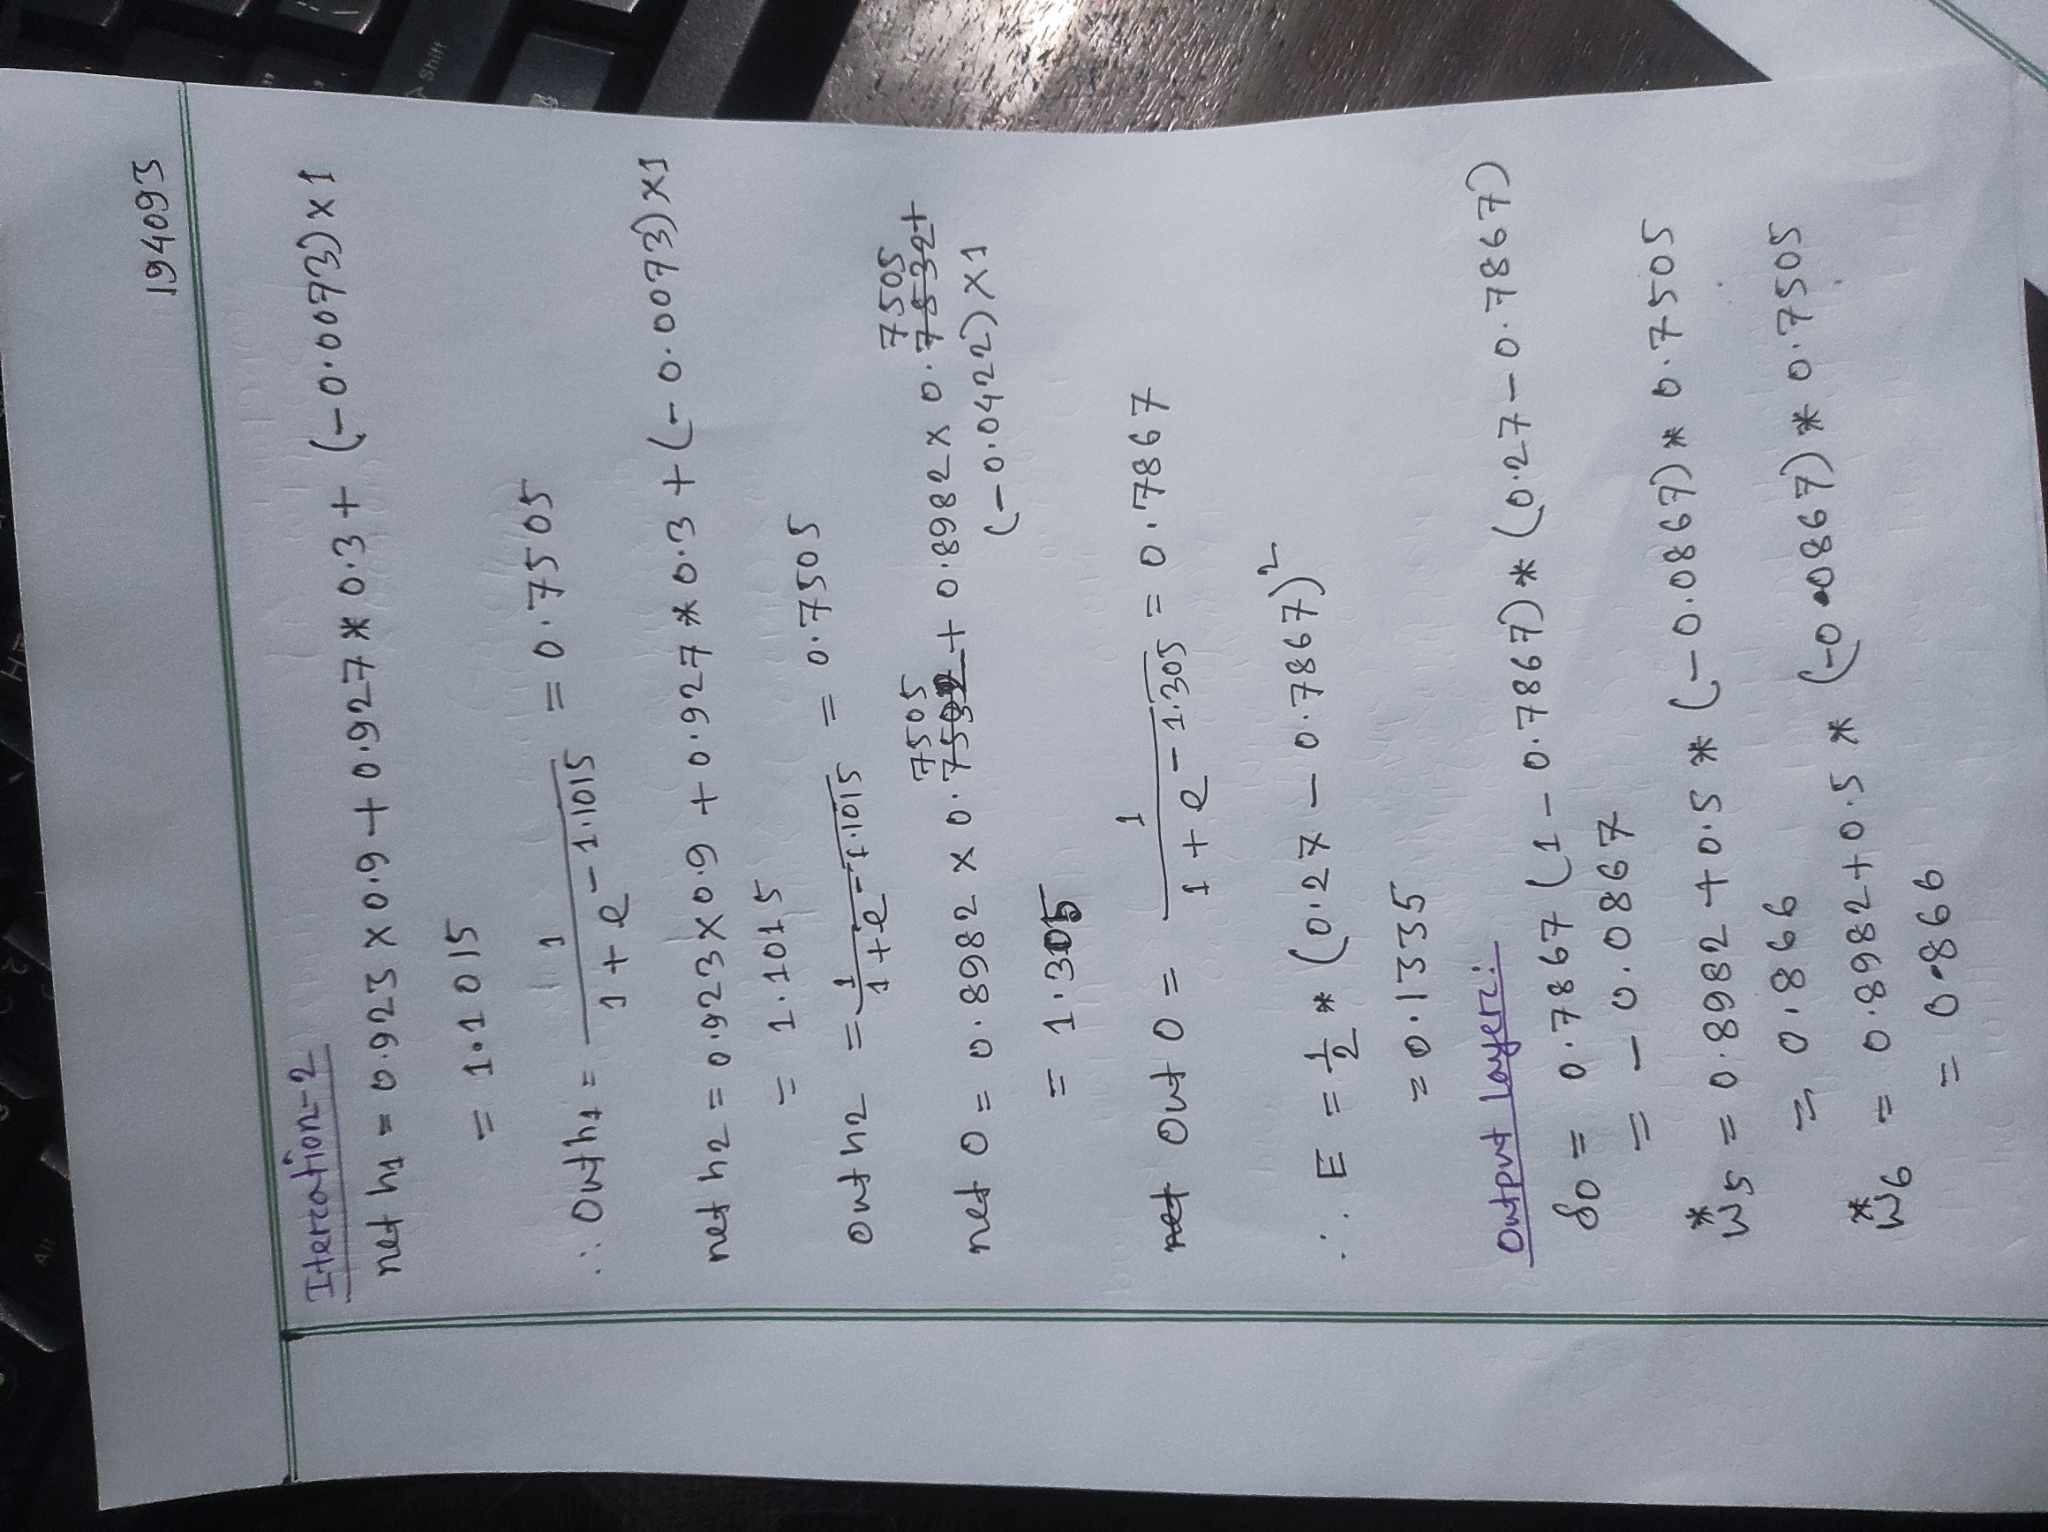 194093
Itercation-2
net h1 = 0.923 × 0.9 + 0.927 * 0.3 + (-0.0073) × 1
= 1.1015
∴ Out h1 = 1 / 1 + e^-1.1015 = 0.7505
net h2 = 0.923 × 0.9 + 0.927 * 0.3 + (-0.0073) × 1
= 1.1015
out h2 = 1 / 1 + e^-1.1015 = 0.7505
net O = 0.8982 × 0.7505 + 0.8982 × 0.7505 +
(-0.0422) × 1
= 1.305
Out O = 1 / 1 + e^-1.305 = 0.7867
∴ E = 1/2 * (0.27 - 0.7867)²
= 0.1335
Output layerc:
δo = 0.7867 (1 - 0.7867) * (0.27 - 0.7867)
= - 0.0867
w5* = 0.8982 + 0.5 * (-0.0867) * 0.7505
= 0.866
w6* = 0.8982 + 0.5 * (-0.0867) * 0.7505
= 0.866
Shift
Alt